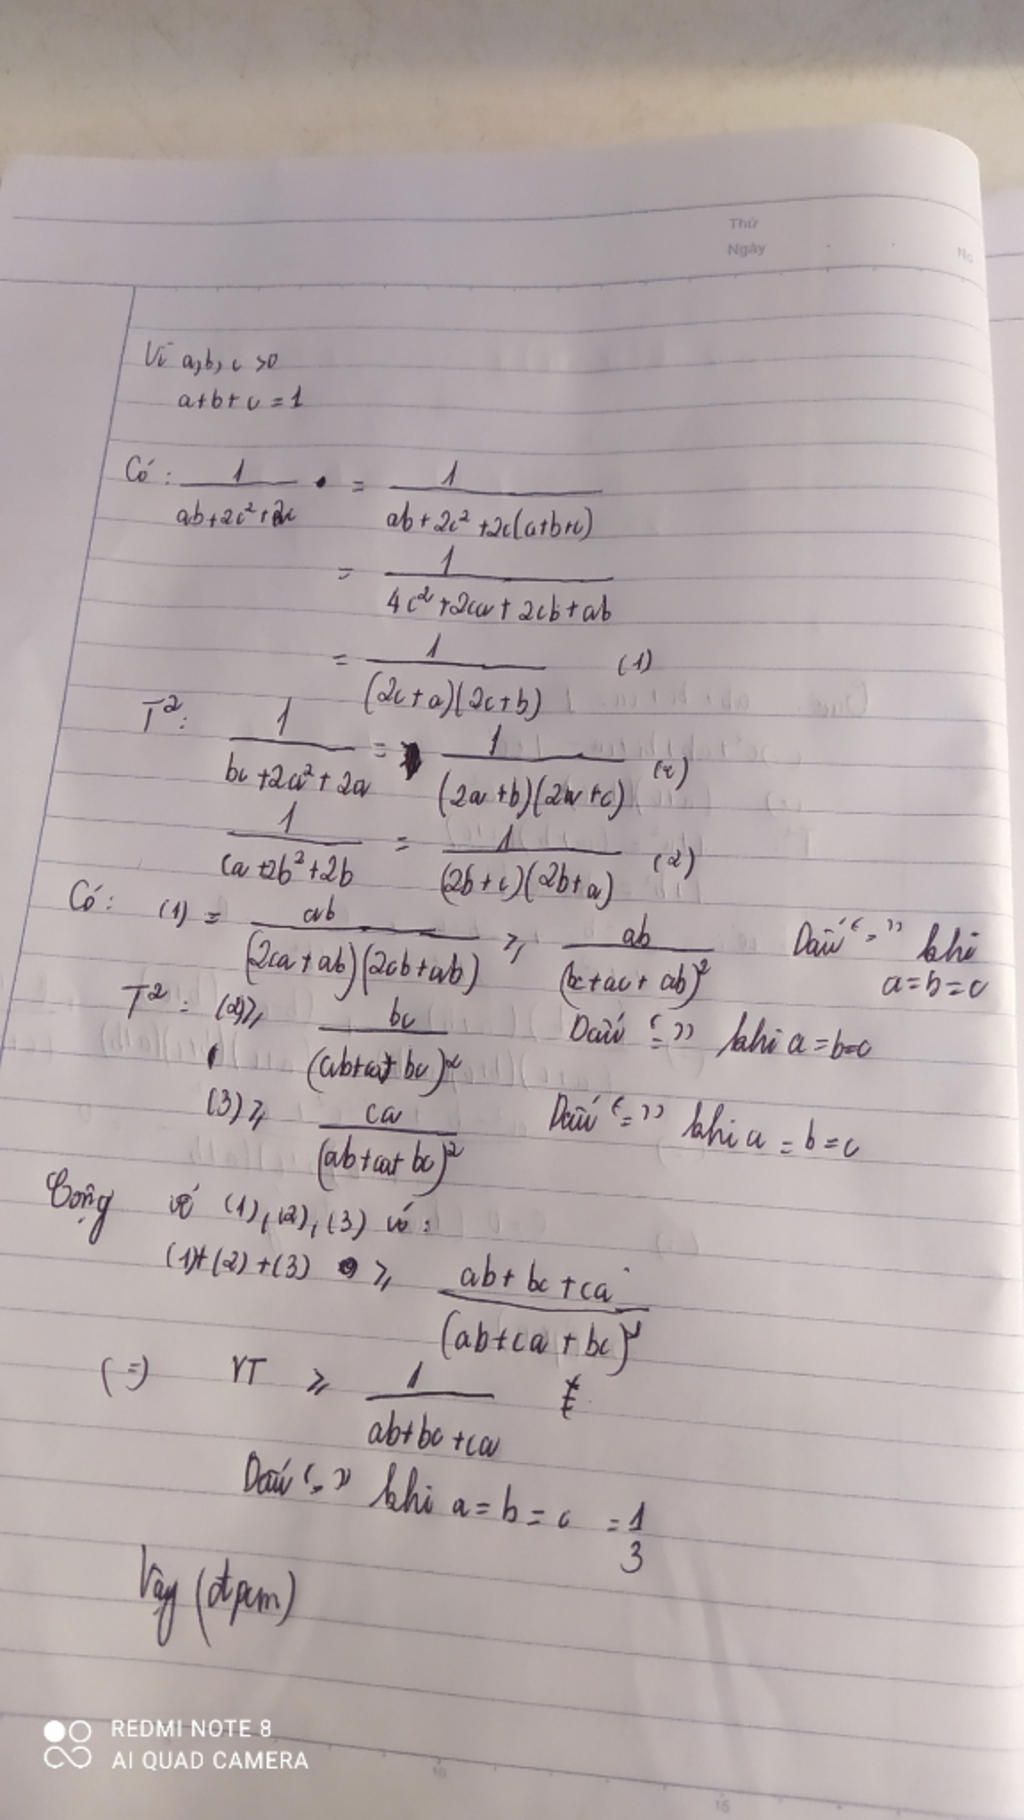 Thứ
Ngày No
Vì a,b,c >0
a+b+c =1
Có: 1/(ab+2c²+2c) = 1/(ab+2c²+2c(a+b+c))
= 1/(4c²+2ca+2cb+ab)
= 1/((2c+a)(2c+b)) (1)
T²: 1/(bc+2a²+2a) = 1/((2a+b)(2a+c)) (2)
1/(ca+2b²+2b) = 1/((2b+c)(2b+a)) (2)
Có: (1) = ab/((2ca+ab)(2cb+ab)) ≥ ab/(bc+ac+ab)² Dấu "=" khi
a=b=c
T²: (2) ≥ bc/(ab+ca+bc)² Dấu "=" khi a=b=c
(3) ≥ ca/(ab+ca+bc)² Dấu "=" khi a=b=c
Cộng vế (1),(2),(3) có:
(1)+(2)+(3) ≥ (ab+bc+ca)/(ab+ca+bc)²
(=) VT ≥ 1/(ab+bc+ca)
Dấu "=" khi a=b=c =1/3
Vậy (đpcm)
REDMI NOTE 8
AI QUAD CAMERA
16
15